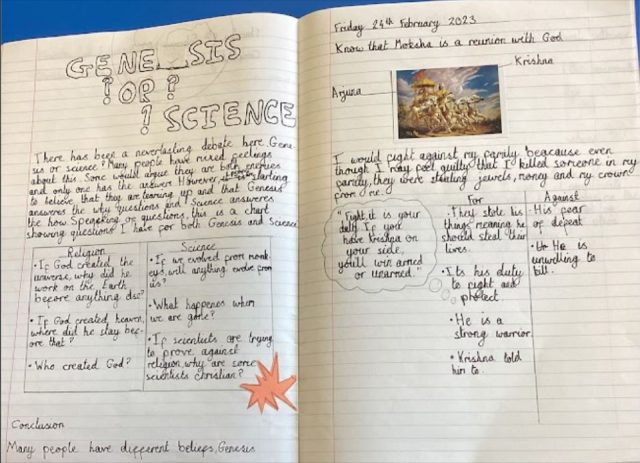 GENE__SIS
? OR ?
? SCIENCE
There has been a neverlasting debate here. Gene-
sis or science? Many people have mixed feelings
about this. Some would argue they are both enemies
and only one has the answer. However, starting
to believe that they are teaming up and that Genesis
answers the why questions and Science answeres
the how. Speaking or questions, this is a chart
showing questions I have for both Genesis and Science
Religion
• If God created the
universe, why did he
work on the Earth
before anything else?
• If God created heaven,
where did he stay bef-
ore that?
• Who created God?
Science
• If we evolved from monk-
eys, will anything evolve from
us?
• What happenes when
we are gone?
• If scientists are trying
to prove against
religion, why are some
scientists christian?
Conclusion
Many people have different beliefs, Genesis
Friday 24th February 2023
Know that Moksha is a reunion with God
Krishna
Arjuna
I would fight against my family beacause even
though I may feel guilty that I killed someone in my
family, they were stealing jewels, money and my crown
from me.
"Fight, it is your
duty. If you
have Krishna on
your side,
you'll win armed
or unarmed."
For
• They stole his
things meaning he
should steal their
lives.
• Its his duty
to fight and
protect
• He is a
strong warrior
• Krishna told
him to.
Against
• His fear
of defeat
• He is
unwilling to
kill.